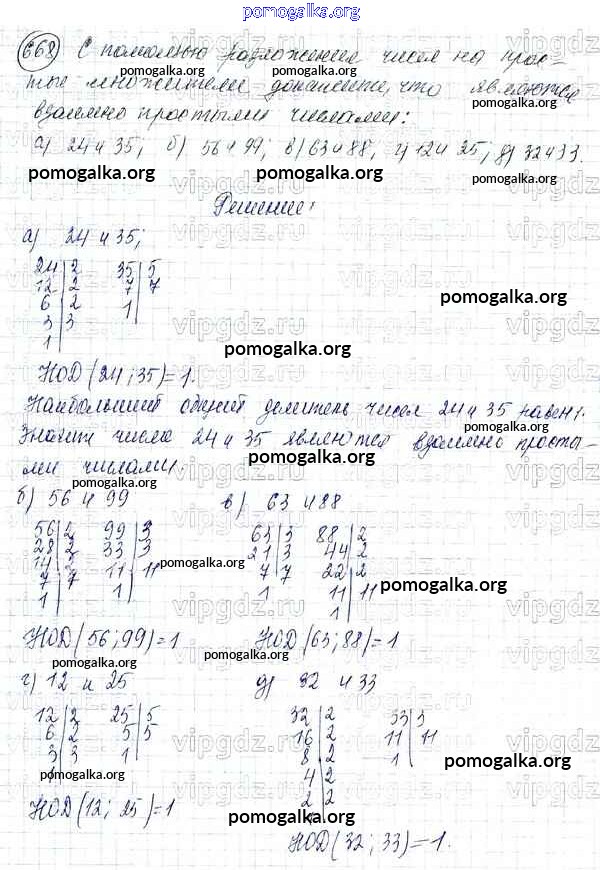 pomogalka.org
668 С помощью разложения чисел на прос-
тые множители докажите, что являются
взаимно простыми числами:
а) 24 и 35; б) 56 и 99; в) 63 и 88; г) 12 и 25; д) 32 и 33.
pomogalka.org pomogalka.org pomogalka.org
Решение:
а) 24 и 35;
24|2 35|5
12|2 7|7
6|2 1|
3|3
1|
pomogalka.org
pomogalka.org
НОД(24;35)=1.
Наибольший общий делитель чисел 24 и 35 равен 1.
Значит числа 24 и 35 являются взаимно просты-
pomogalka.org
ми числами.
pomogalka.org
б) 56 и 99 в) 63 и 88
56|2 99|3 63|3 88|2
28|2 33|3 21|3 44|2
14|2 11|11 7|7 22|2
7|7 1| 1 11|11
1| 1|
pomogalka.org
pomogalka.org
НОД(56;99)=1 НОД(63;88)=1
pomogalka.org pomogalka.org
г) 12 и 25 д) 32 и 33
12|2 25|5 32|2 33|3
6|2 5|5 16|2 11|11
3|3 1| 8|2 1|
4|2
2|2
pomogalka.org
pomogalka.org
НОД(12;25)=1
pomogalka.org
НОД(32;33)=1.
vipgdz.ru